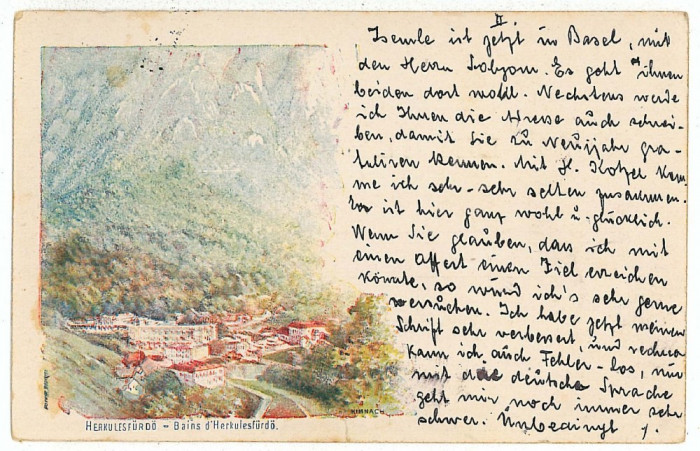 II.
Isemle ist jetzt in Basel, mit
den Herrn. Es geht ihnen
beiden dort wohl. Nechstens werde
ich Ihnen die Adresse auch schrei-
ben, damit Sie zu Neujjahr gra-
tuliren kennen. Mit H. Kotzel kom
me ich sehr-sehr selten zusammen.
Er ist hier ganz wohl u. glücklich.
Wenn Sie glauben, dass ich mit
einen Offert einen Ziel erreichen
könnte, so würd ich's sehr gerne
versuchen. Ich habe jetzt meinen
Schrift sehr verbesert, und rechnen
kann ich auch Fehler-los, nur
mit die deutsche Sprache
geht mir noch immer sehr
schwer. Unbedingt /.
KIMNACH
HERKULESFÜRDÖ – Bains d'Herkulesfürdö.